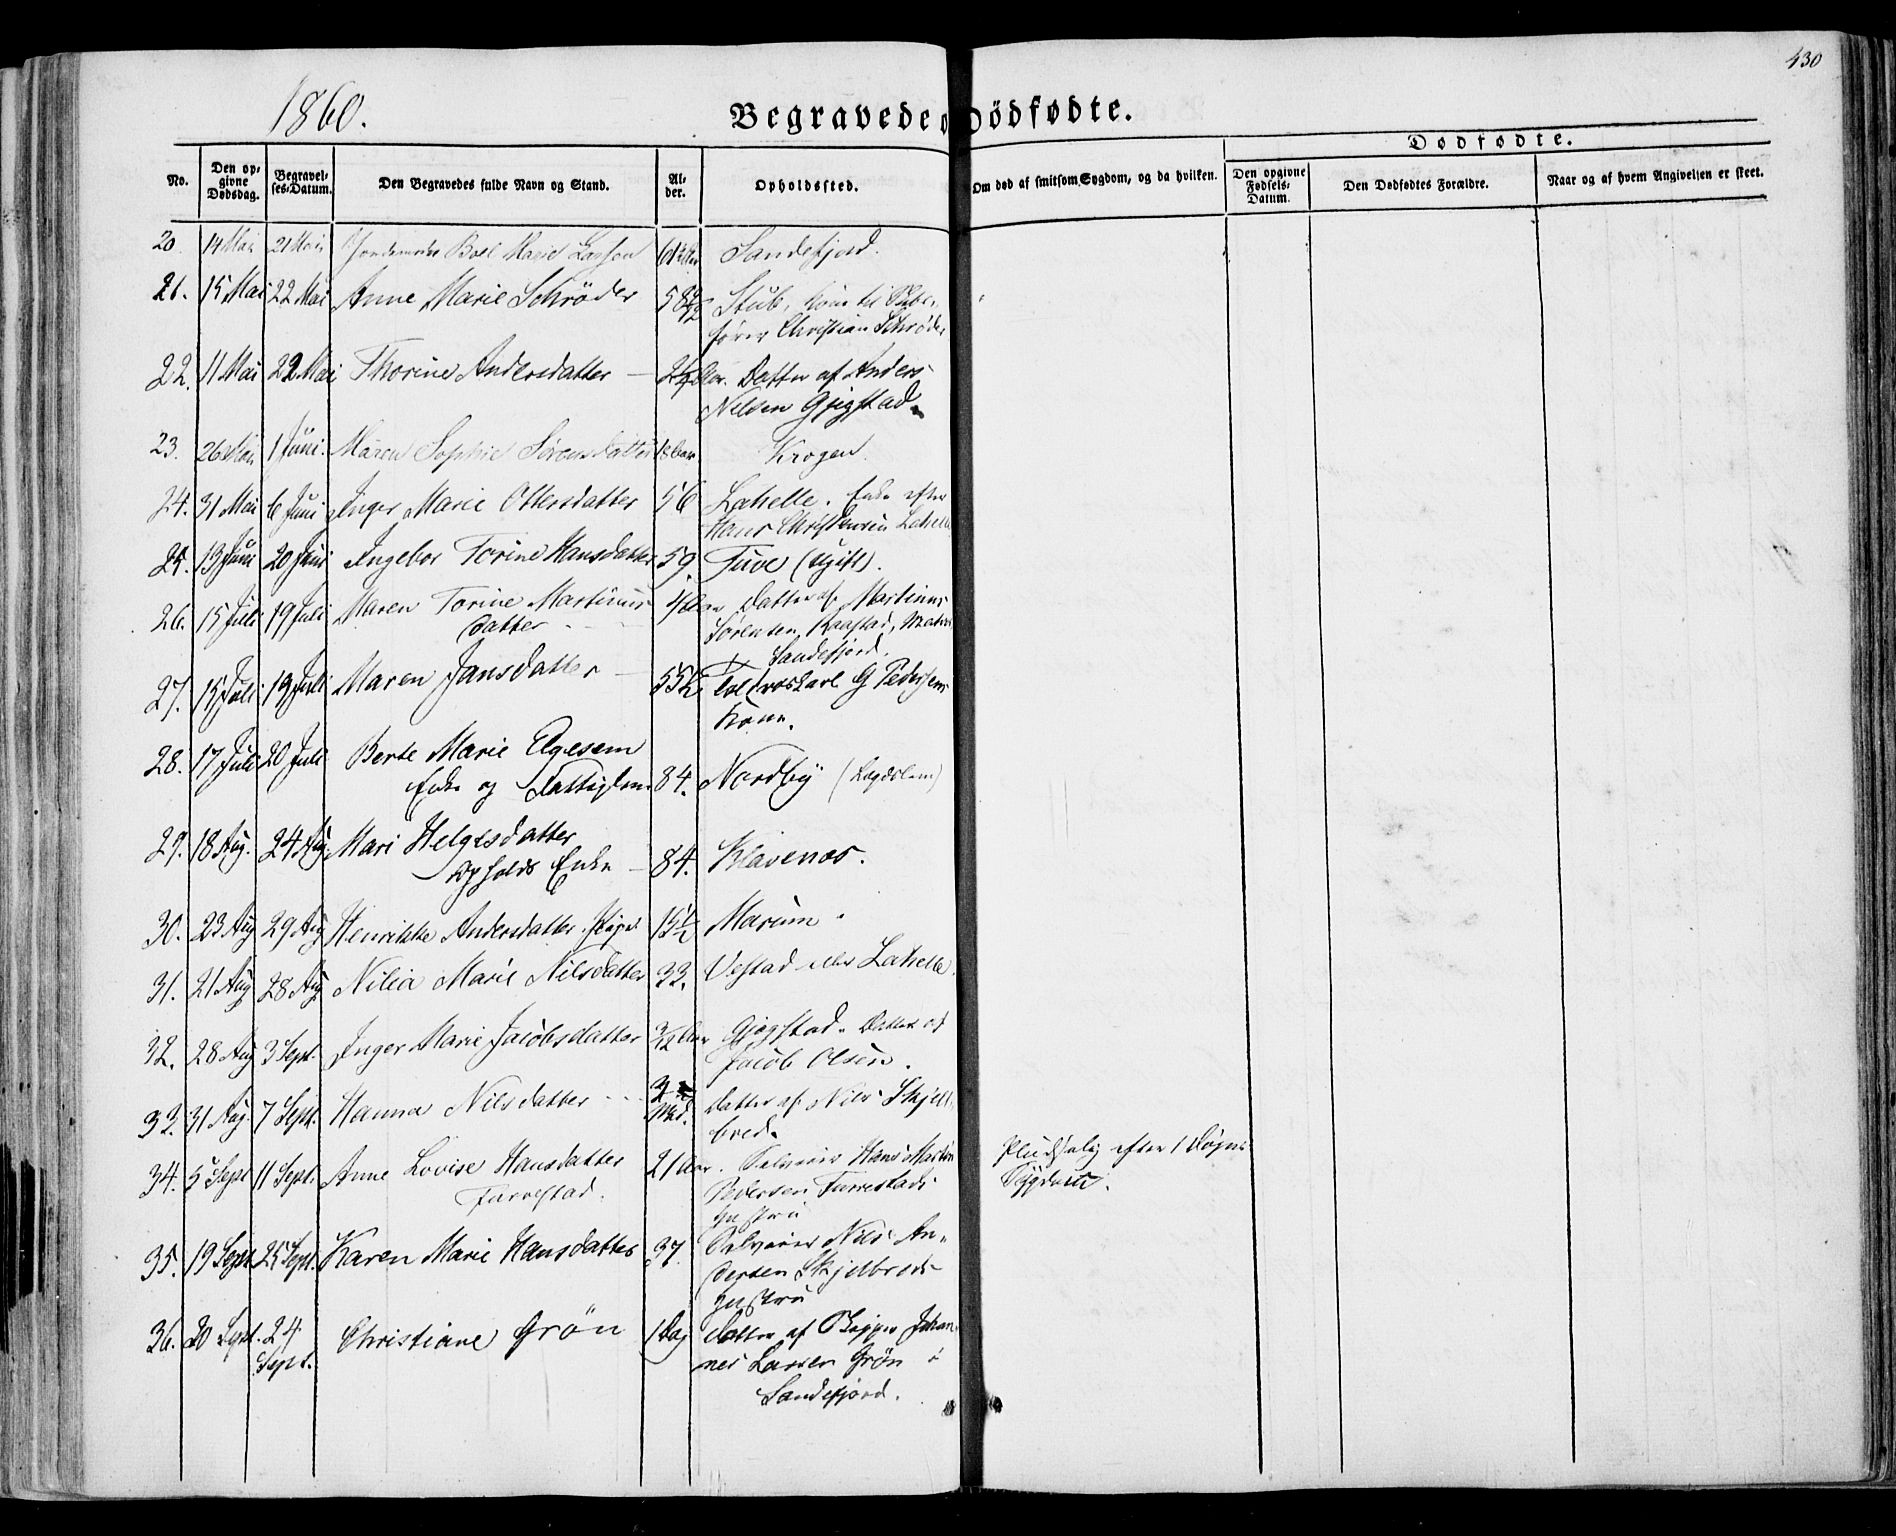 430
1860.
Begravede o Dødfødte.
Dødfødte.
No.
Den op-
givne
Dødsdag.
Begravel-
ses-Datum.
Den Begravedes fulde Navn og Stand.
Al-
der.
Opholdssted.
Om død af smitsom Sygdom, og da hvilken.
Den opgivne
Fødsels-
Datum.
Den Dødfødtes Forældre.
Naar og af hvem Angivelsen er skeet.
20. 14 Mai 21 Mai Marie Sandefjord.
21. 15 Mai 22 Mai Anne Marie Schrøder 58 Stub, Kone til
Christian Schrøder
22. 11 Mai 22 Mai Thorine Andersdatter Aar. Datter af Anders
Nelsen Gjegstad.
23. 26 Mai 1 Juni. Maren Sophie Sørensdatter 18 Aar Krogen.
24. 31 Mai 6 Juni Inger Marie Ottersdatter 56 Lahelle. Enke efter
Hans Christensen Lahelle
25. 13 Juni 20 Juni Ingebor Torine Hansdatter 59. Tuve (ugift).
26. 15 Juli 19 Juli Maren Torine Martinus
datter Datter af Martinus
Sørensen
Sandefjord.
27. 15 Juli 19 Juli Maren Jansdatter 55 1/2 G Pedersens
Kone.
28. 17 Juli 20 Juli Berte Marie Agesem
Enke og Fattiglem 84. Nordby (Lægdslem)
29. 18 Aug. 24 Aug. Mari Helgesdatter
Opholds Enke 84. Klavenæs.
30. 23 Aug 29 Aug Henrikke Andersdatter. Pige 15 1/2 Marum.
31. 21 Aug 28 Aug Nilia Marie Nilsdatter 33. Vestad eller Lahelle.
32. 28 Aug 3 Sept. Inger Marie Jacobsdatter 3/12 Aar Gjegstad. Datter af
Jacob Olsen.
33. 31 Aug. 7 Sept. Hanna Nilsdatter 3
Mnd. Datter af Nils Skjell
bred.
34. 5 Sept 11 Sept. Anne Lovise Hansdatter 21 Aar. Selveier Hans Martin Pludselig efter 1 Døgns
Furustad. Pedersen Furustads Sygdom.
Hustru
35. 19 Sept. 25 Sept. Karen Marie Hansdatter 37. Selveier Nils An-
dersen Skjelbreds
Hustru
36. 20 Sept. 24
Sept. Christiane Grøn 1 Dag Datter af Bager Johan
nes Larsen Grøn i
Sandefjord.